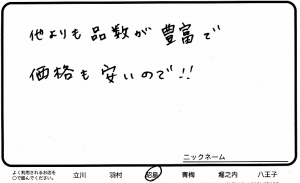 他よりも品数が豊富で
価格も安いので!!
ニックネーム
よく利用されるお店を
○で囲んでください。
立川 羽村 昭島 青梅 堀之内 八王子